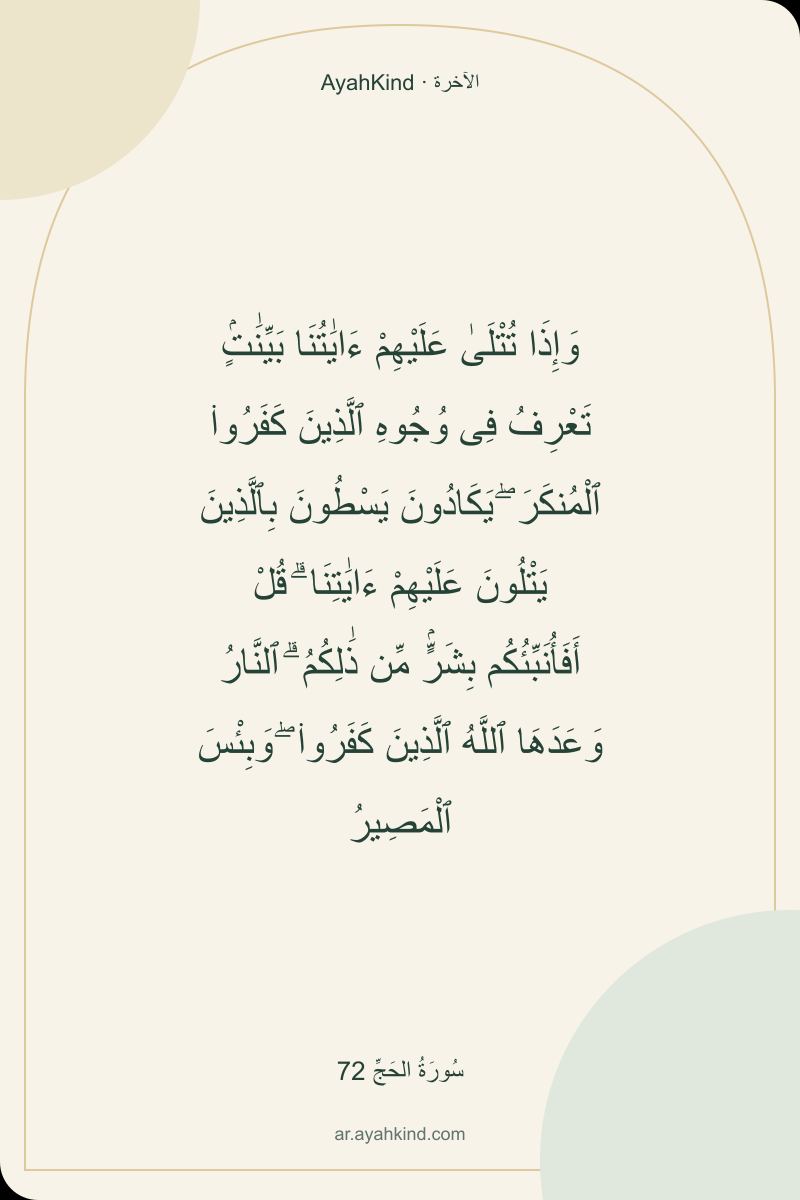 AyahKind · الآخرة
وَإِذَا تُتْلَىٰ عَلَيْهِمْ ءَايَٰتُنَا بَيِّنَٰتٍۢ
تَعْرِفُ فِى وُجُوهِ ٱلَّذِينَ كَفَرُوا۟
ٱلْمُنكَرَ ۖ يَكَادُونَ يَسْطُونَ بِٱلَّذِينَ
يَتْلُونَ عَلَيْهِمْ ءَايَٰتِنَا ۗ قُلْ
أَفَأُنَبِّئُكُم بِشَرٍّۢ مِّن ذَٰلِكُمُ ۗ ٱلنَّارُ
وَعَدَهَا ٱللَّهُ ٱلَّذِينَ كَفَرُوا۟ ۖ وَبِئْسَ
ٱلْمَصِيرُ
سُورَةُ الحَجِّ 72
ar.ayahkind.com